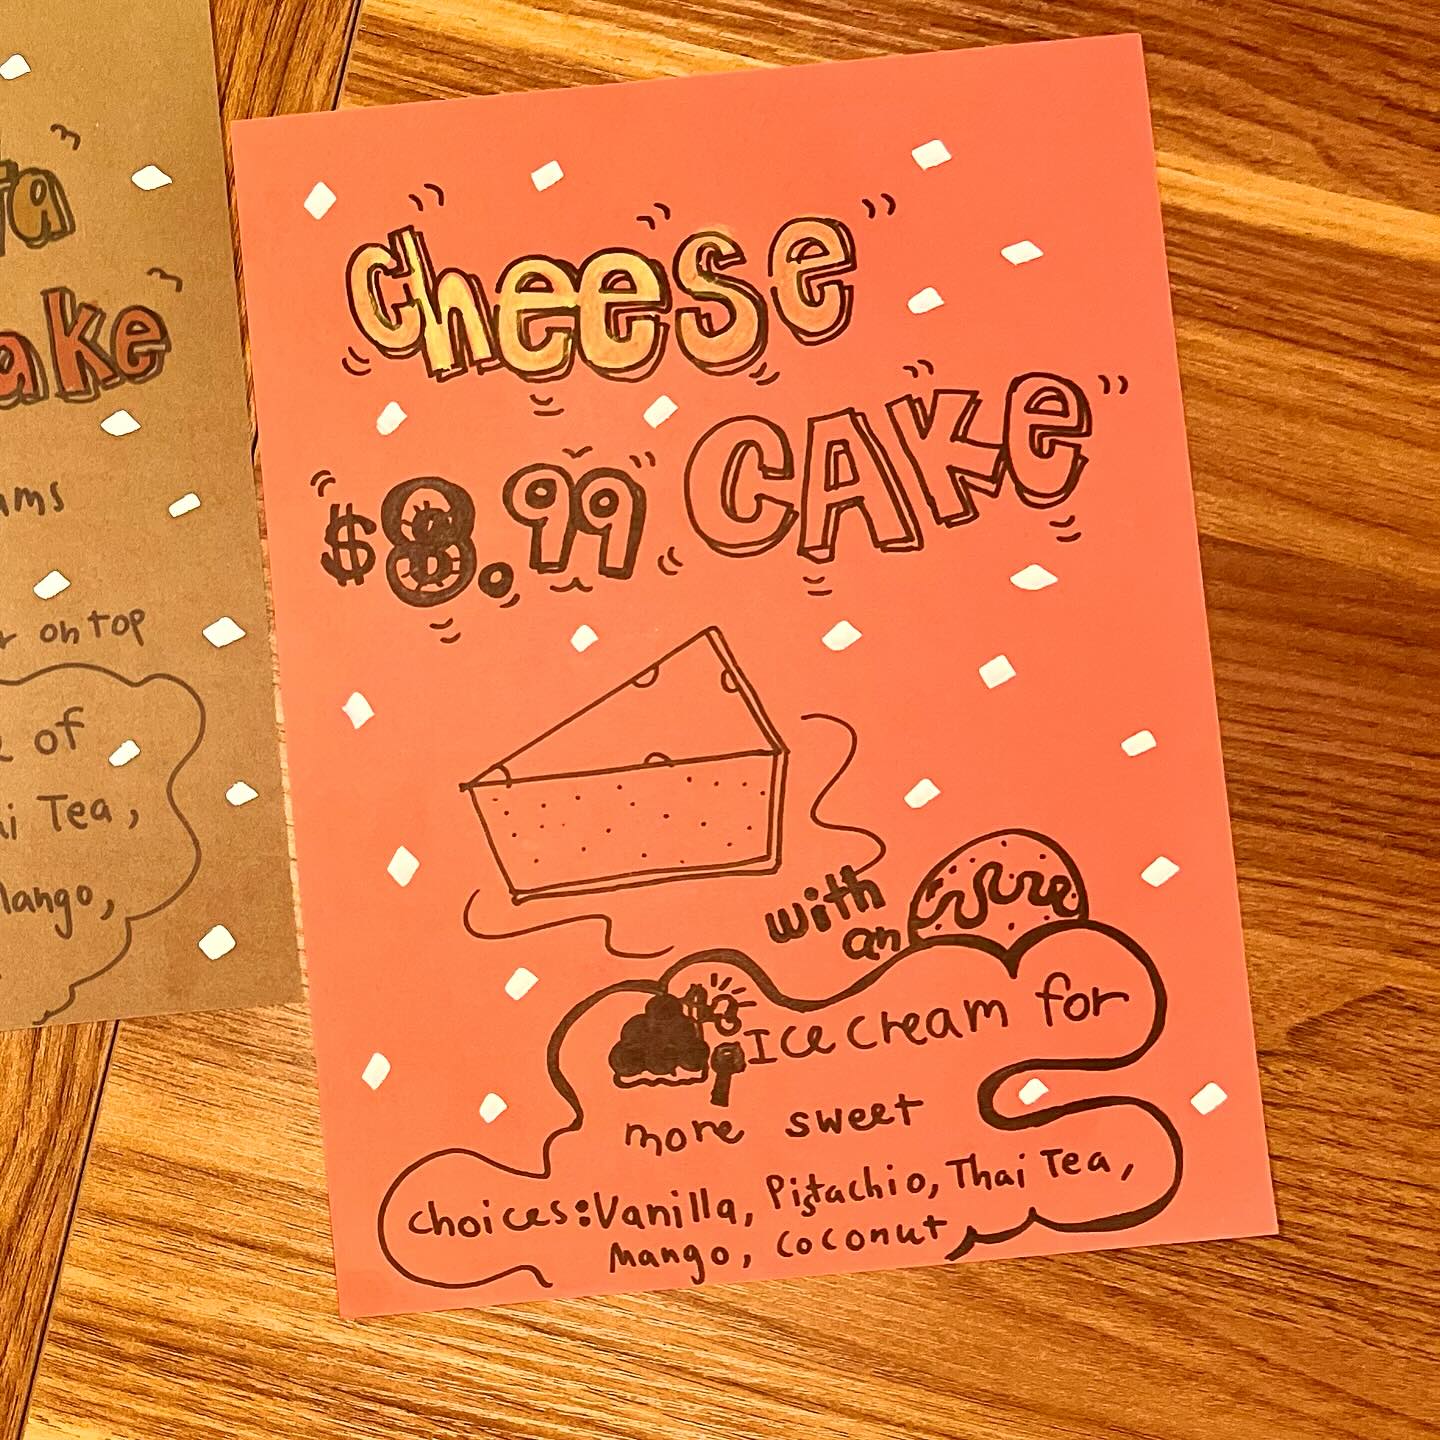 cheese
CAKe
$8.99
with
an
Ice cream for
more sweet
choices: Vanilla, Pistachio, Thai Tea,
Mango, coconut
ake
on top
of
Tea,